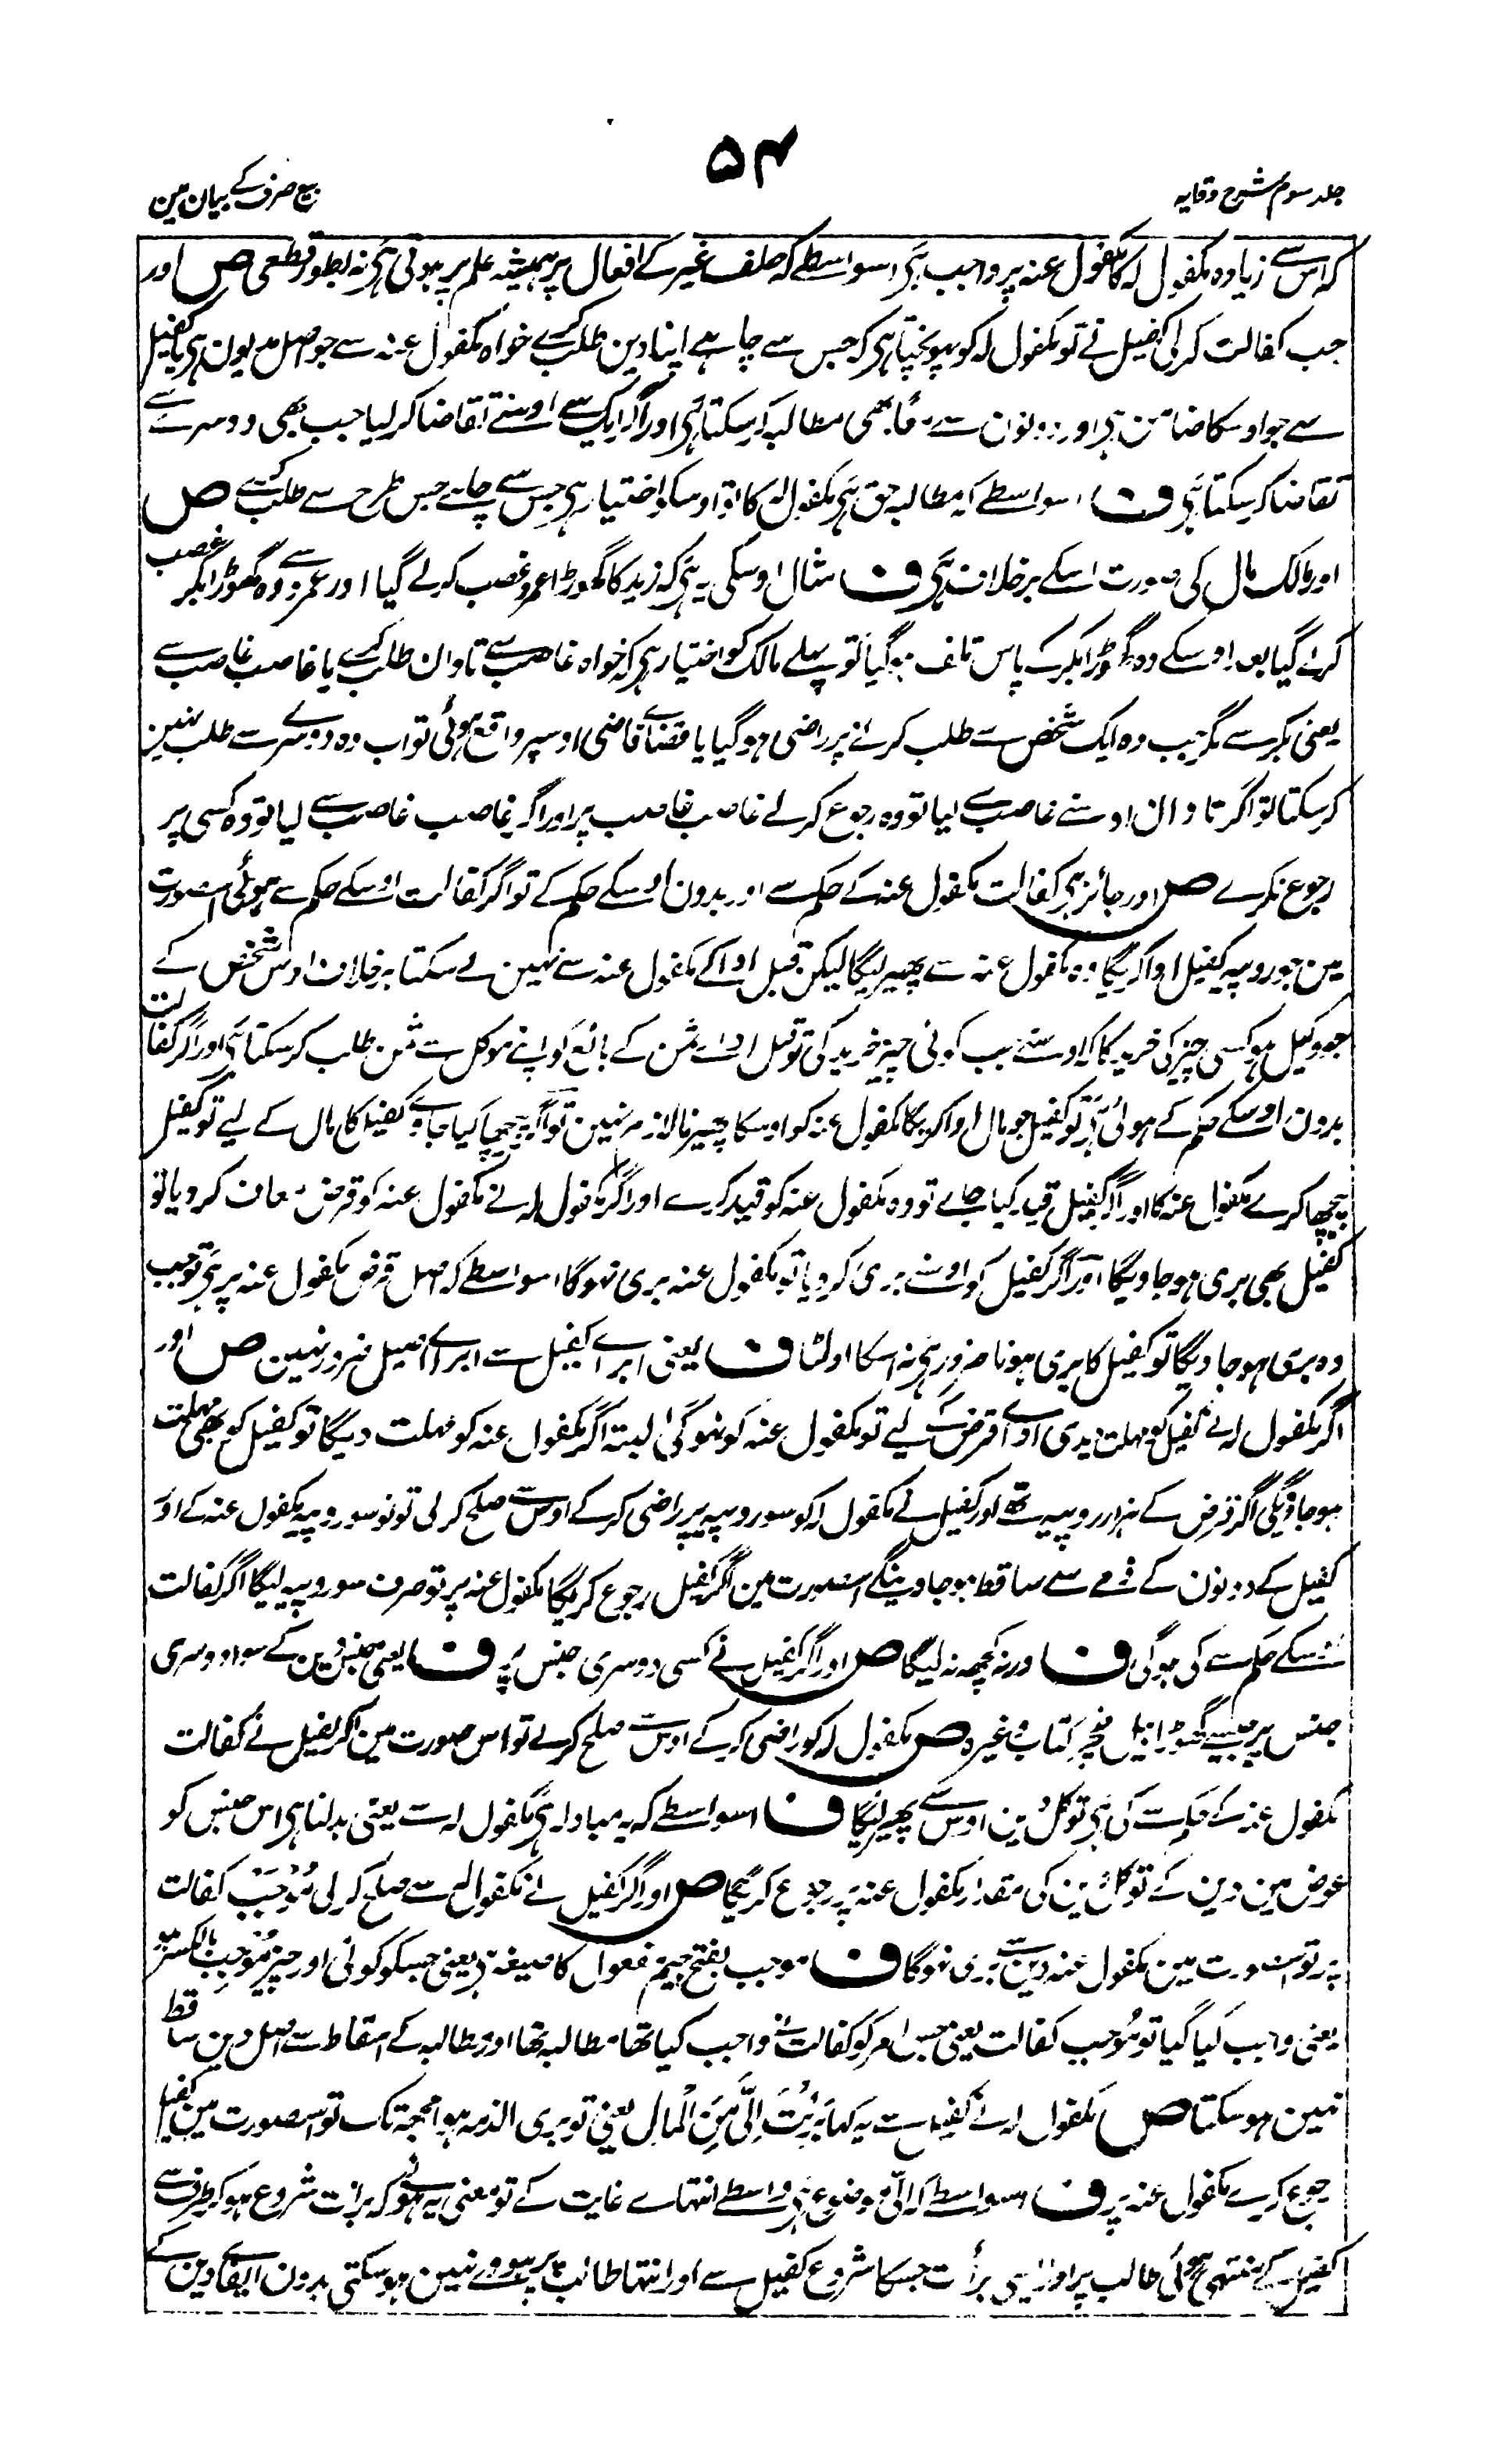 ۵۴
جلد سوم شرح وقایہ
بیع صرف کے بیان مین
کہ اس سے زیادہ مکفول لہ کا مکفول عنہ پر واجب ہی اسواسطے کہ حلف غیر کے افعال پر ہمیشہ علم پر ہوتی ہی نہ بطور قطعی ص اور
جب کفالت کر لی کفیل نے تو مکفول لہ کو پہونچتا ہی کہ جس سے چاہے اپنا دین طلب کرے خواہ مکفول عنہ سے جو اصل مدیون ہی یا کفیل
سے جو اوسکا ضامن ہی اور دونون سے معًا بھی مطالبہ کر سکتا ہی اور اگر ایک سے اوسنے تقاضا کر لیا جب بھی دوسرے سے
تقاضا کر سکتا ہی ف اسواسطے کہ مطالبہ حق ہی مکفول لہ کا تو اوسکو اختیار ہی جس سے چاہے جس طرح سے طلب کرے ص
اور مالک مال کی صورت اسکے برخلاف ہی ف مثال اوسکی یہ ہی کہ زید کا گھوڑا عمرو غصب کر لے گیا اور عمرو سے وہ گھوڑا بکر غصب
کر لے گیا بعد اوسکے وہ گھوڑا بکر کے پاس تلف ہو گیا تو پہلے مالک کو اختیار ہی کہ خواہ غاصب سے تاوان طلب کرے یا غاصب غاصب سے
یعنی بکر سے مگر جب وہ ایک شخص سے طلب کرنے پر راضی ہو گیا یا قضاے قاضی اوسپر واقع ہوئی تو اب وہ دوسرے سے طلب نہین
کر سکتا تو اگر تاوان اوسنے غاصب سے لیا تو وہ رجوع کر لے غاصب غاصب پر اور اگر غاصب غاصب سے لیا تو وہ کسی پر
رجوع نکرے ص اور جائز ہی کفالت مکفول عنہ کے حکم سے اور بدون اوسکے حکم کے تو اگر کفالت اوسکے حکم سے ہوئی اس صورت
مین جو روپیہ کفیل ادا کریگا وہ مکفول عنہ سے پھیر لیگا لیکن قبل ادا کے مکفول عنہ سے نہین لے سکتا برخلاف اوس شخص کے
جو وکیل ہو کسی چیز کی خرید کا کہ اوسنے جب کوئی چیز خرید کی تو قبل ادائے ثمن کے بائع کو اپنے موکل سے ثمن طلب کر سکتا ہی اور اگر کفالت
بدون اوسکے حکم کے ہوئی ہی تو کفیل جو مال ادا کریگا مکفول عنہ کو اوسکا پھیرنا لازم نہین تو اگر پیچھا کیا جاوے کفیل کا مال کے لیے تو کفیل
پیچھا کرے مکفول عنہ کا اور اگر کفیل قید کیا جاے تو وہ مکفول عنہ کو قید کرے اور اگر مکفول لہ نے مکفول عنہ کو قرض معاف کر دیا تو
کفیل بھی بری ہو جاویگا اور اگر کفیل کو اوسنے بری کر دیا تو مکفول عنہ بری نہوگا اسواسطے کہ اصل قرض مکفول عنہ پر ہی تو جب
وہ بری ہو جاویگا تو کفیل کا بری ہونا ضرور ہی نہ اسکا اولٹا ف یعنی ابراے کفیل سے ابراے اصیل ضرور نہین ص اور
اگر مکفول لہ نے کفیل کو مہلت دیدی اداے قرض کے لیے تو مکفول عنہ کو نہوگی البتہ اگر مکفول عنہ کو مہلت دیگا تو کفیل کو بھی مہلت
ہو جاویگی اگر قرض کے ہزار روپیہ تھے اور کفیل نے مکفول لہ کو سو روپیہ پر راضی کر کے اوس سے صلح کر لی تو نو سو روپیہ مکفول عنہ کے اور
کفیل کے دونون کے ذمے سے ساقط ہو جاوینگے اس صورت مین اگر کفیل رجوع کریگا مکفول عنہ پر تو صرف سو روپیہ لیگا اگر کفالت
اوسکے حکم سے کی ہوگی ف ورنہ کچھ نہ لیگا ص اور اگر کفیل نے کسی دوسری جنس پر ف یعنی جنس دین کے سوا دوسری
جنس پر جیسے گھوڑا بیل خچر کتاب وغیرہ ص مکفول لہ کو راضی کر کے اوس سے صلح کر لے تو اس صورت مین اگر کفیل نے کفالت
مکفول عنہ کے حکم سے کی ہی تو کل دین اوس سے پھیر لیگا ف اسواسطے کہ یہ مبادلہ ہی مکفول لہ سے یعنی بدلنا ہی اس جنس کو
عوض مین دین کے تو کل دین کی مقدار مکفول عنہ پر رجوع کریگا ص اور اگر کفیل نے مکفول لہ سے صلح کر لی مُوجَب کفالت
پر تو اس صورت مین مکفول عنہ دین سے بری نہوگا ف موجب بفتح جیم مفعول کا صیغہ ہی یعنی جسکو کوئی اور چیز مُوجِب بالکسر ہو
یعنی واجب کیا گیا تو مُوجب کفالت یعنی جس امر کو کفالت نے واجب کیا تھا مطالبہ تھا اور مطالبہ کے اسقاط سے اصل دین ساقط
نہین ہو سکتا ص مکفول لہ نے کفیل سے یہ کہا بَرِئْتَ اِلَیَّ مِنَ الْمَالِ یعنی تو بری الذمہ ہوا مجھ تک تو اس صورت مین کفیل
رجوع کرے مکفول عنہ پر ف اسواسطے کہ الی موضوع ہی واسطے انتہاے غایت کے تو معنی یہ ہوئے کہ برائت شروع ہو کر طرف سے
کفیل کے منتہی ہوئی طالب پر اور ایسی برأت جسکا شروع کفیل سے اور انتہا طالب پر ہووے نہین ہو سکتی بدون ایفاے دین کے